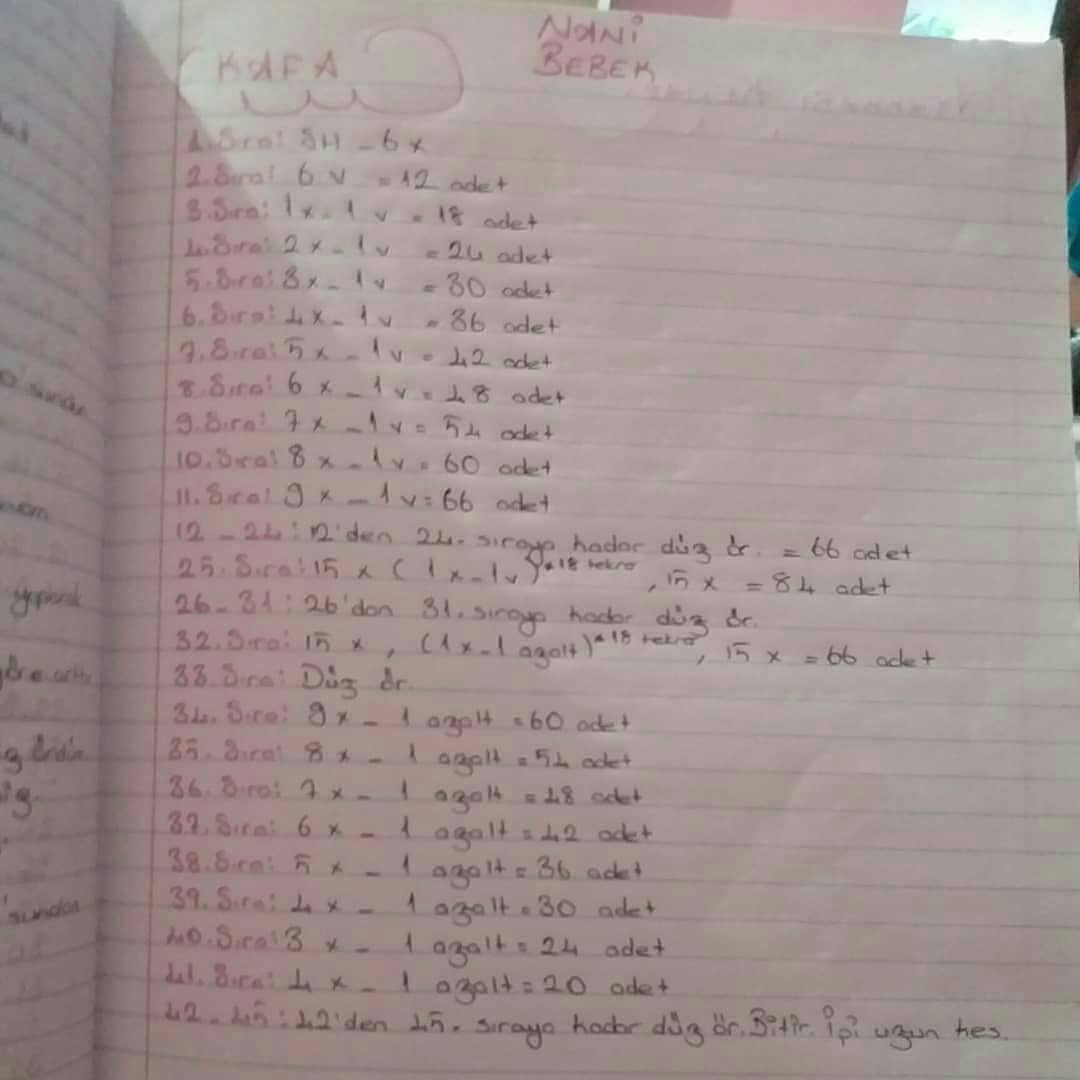 NANİ
BEBEK
KAFA
1.Sıra: SH - 6x
2.Sıra: 6 v = 12 adet
3.Sıra: 1x - 1 v = 18 adet
4.Sıra: 2 x - 1v = 24 adet
5.Sıra: 3x - 1v = 30 adet
6.Sıra: 4x - 1 v = 36 adet
7.Sıra: 5 x - 1 v = 42 adet
8.Sıra: 6 x - 1 v = 48 adet
9.Sıra: 7 x - 1 v = 54 adet
10.Sıra: 8 x - 1v = 60 adet
11.Sıra: 9 x - 1 v = 66 adet
12 - 24: 12'den 24. sıraya kadar düz ör. = 66 adet
25.Sıra: 15 x ( 1x - 1v )*18 tekra , 15 x = 84 adet
26 - 31: 26'dan 31. sıraya kadar düz ör.
32.Sıra: 15 x , (1x - 1 azalt)*18 tekra , 15 x = 66 adet
33.Sıra: Düz ör.
34.Sıra: 9x - 1 azalt = 60 adet
35.Sıra: 8 x - 1 azalt = 54 adet
36.Sıra: 7 x - 1 azalt = 48 adet
37.Sıra: 6 x - 1 azalt = 42 adet
38.Sıra: 5 x - 1 azalt = 36 adet
39.Sıra: 4 x - 1 azalt = 30 adet
40.Sıra: 3 x - 1 azalt = 24 adet
41.Sıra: 4 x - 1 azalt = 20 adet
42 - 45: 42'den 45. sıraya kadar düz ör. Bitir. İpi uzun kes.